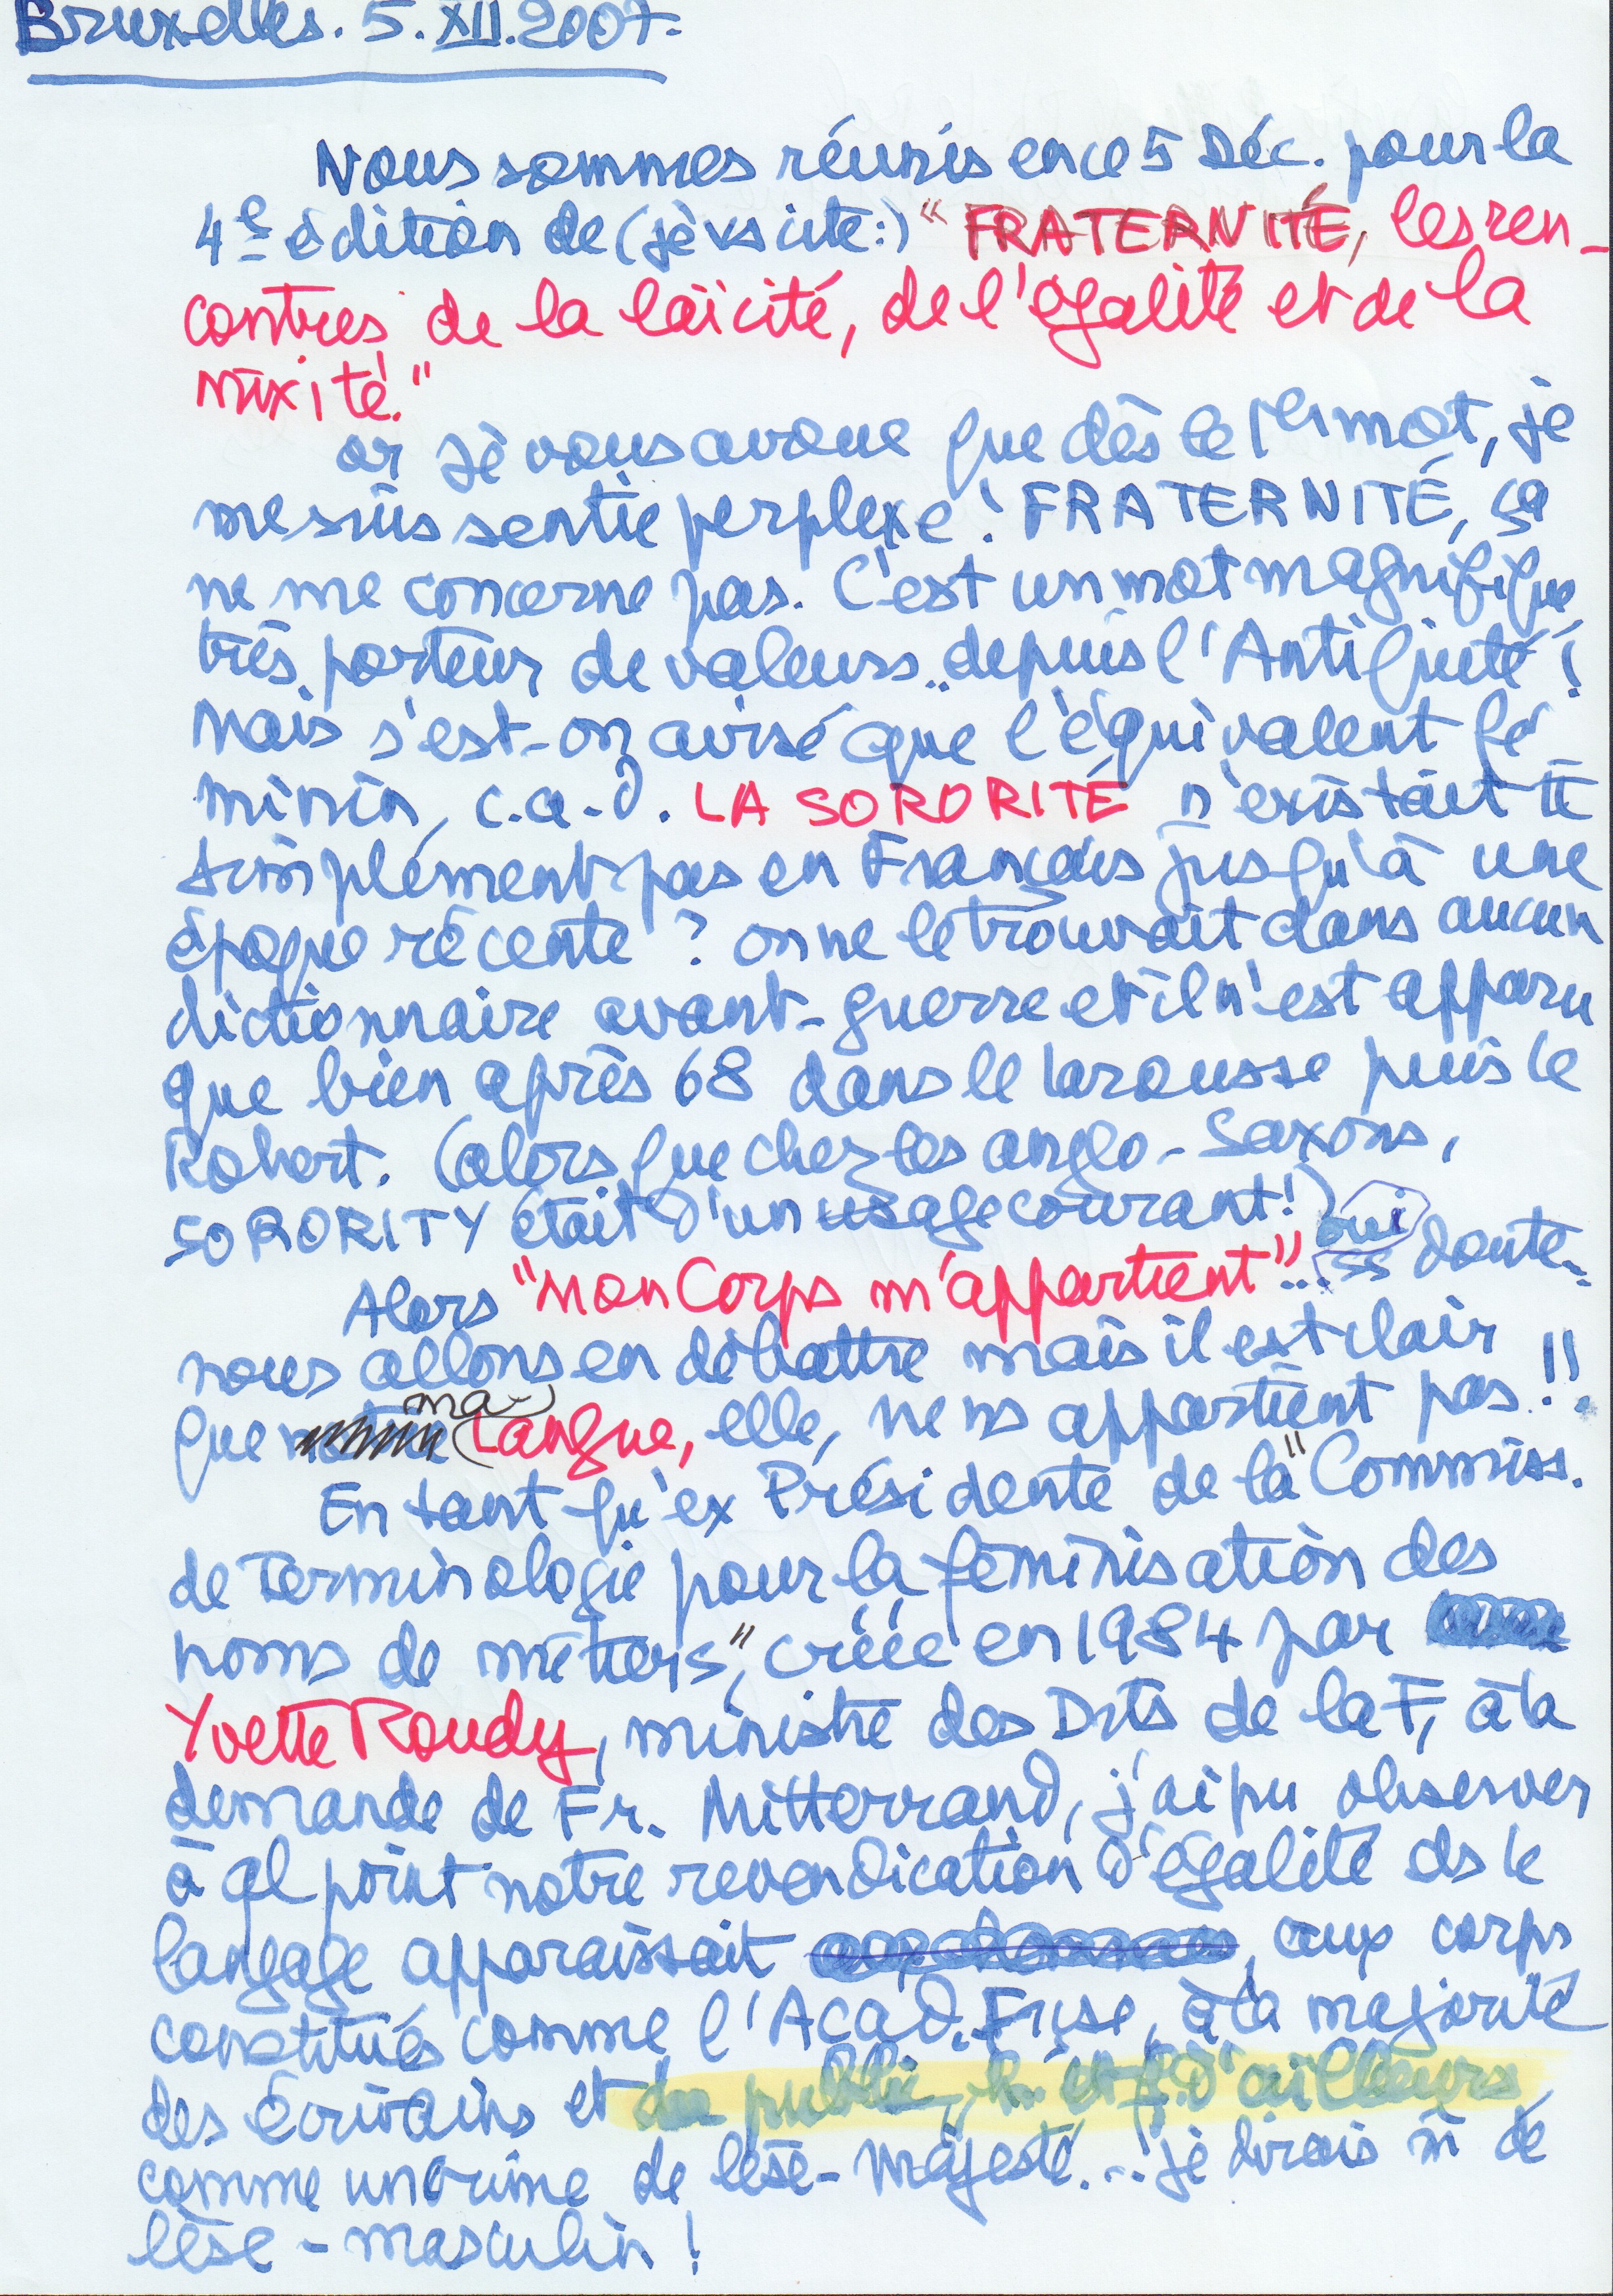 Bruxelles. 5. XII. 2007.
Nous sommes réunis en ce 5 Déc. pour la
4e édition de (je vs cite:) "FRATERNITÉ, les ren-
contres de la laïcité, de l'égalité et de la
mixité."
Or je vous avoue que dès le 1er mot, je
me suis sentie perplexe! FRATERNITÉ, ça
ne me concerne pas. C'est un mot magnifique,
très porteur de valeurs.. depuis l'Antiquité!
Mais s'est-on avisé que l'équivalent fé
minin, c.a.d. LA SORORITÉ n'existait tt
simplement pas en Français jusqu'à une
époque récente? On ne le trouvait dans aucun
dictionnaire avant-guerre et il n'est apparu
que bien après 68 dans le Larousse puis le
Robert. (alors que chez les anglo-Saxons,
SORORITY était d'un usage courant!)
Alors "Mon Corps m'appartient"... oui ss doute-
nous allons en débattre mais il est clair
que ma Langue, elle, ne ns appartient pas!!
En tant qu'ex Présidente de la "Commiss.
de Terminologie pour la féminisation des
noms de métiers", créée en 1984 par
Yvette Roudy, ministre des Drts de la F, à la
demande de Fr. Mitterrand, j'ai pu observer
à ql point notre revendication d'égalité ds le
langage apparaissait, aux corps
constitués comme l'Acad. Frse, à la majorité
des écrivains et du public, h. et f. d'ailleurs,
comme un crime de lèse-Majesté... je dirais m̂ de
lèse-masculin!